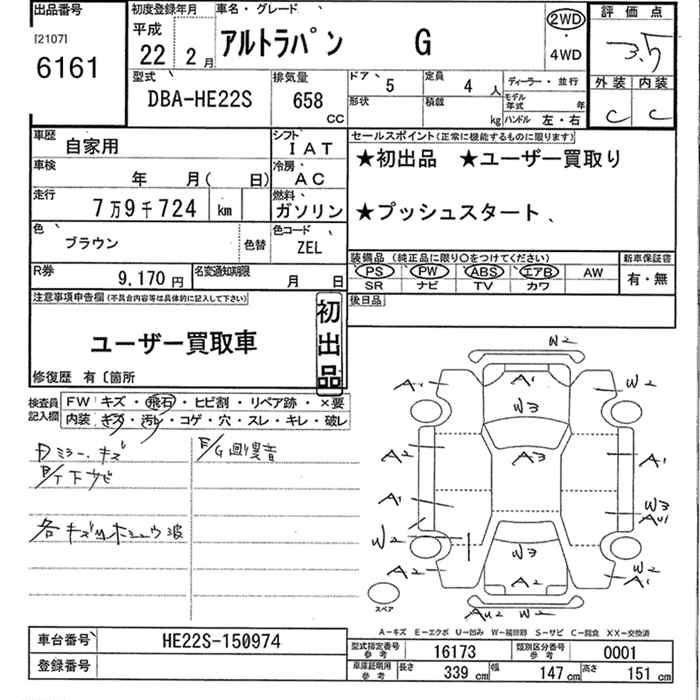 出品番号
[2107]
6161
初度登録年月
平成
22年 2月
車名・グレード
アルトラパン G
2WD
4WD
評価点
3.5
外装 内装
C C
型式
DBA-HE22S
排気量
658
CC
ドア
5
定員
4 人
形状
積載
kg
ディーラー・並行
モデル年式 年
ハンドル 左・右
車歴
自家用
シフト
IAT
車検
年 月( 日)
冷房
AC
走行
7万9千724 km
燃料
ガソリン
色
ブラウン
色替
色コード
ZEL
R券
9,170 円
名変通知期限
月 日
セールスポイント(正常に機能するものに限ります)
★初出品 ★ユーザー買取り
★プッシュスタート
装備品(純正品に限り○をつけてください)
PS PW ABS エアB AW
SR ナビ TV カワ
新車保証書
有・無
後日品
注意事項申告欄(不具合内容等は具体的に記入して下さい)
ユーザー買取車
初出品
修復歴 有〔箇所
検査員記入欄
FW キズ・飛石・ヒビ割・リペア跡・×要
内装 キズ・汚レ・コゲ・穴・スレ・キレ・破レ
Dミラー、キズ
下サビ
各キズ
W2
A1
A1
W2
W3
A2
A3
A1
A1
W3
AU1
W2
W3
A2
A2
W2
A1
AU2 W2
スペア
A-キズ E-エクボ U-凹み W-補修跡 S-サビ C-腐食 XX-交換済
車台番号
HE22S-150974
登録番号
型式指定番号
参考
16173
類別区分番号
参考
0001
車庫証明用
参考
長さ 339 cm
幅 147 cm
高さ 151 cm